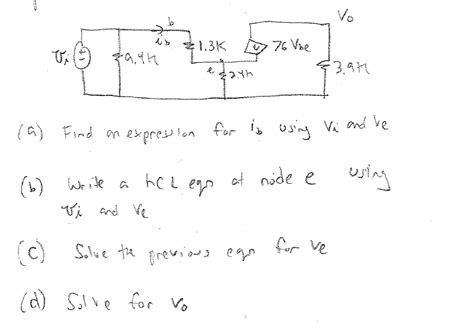 b
Vo
ib
1.3K
76 Vbe
Vi
9.4K
e
24K
3.9K
(a) Find an expression for ib using Vi and Ve
(b) Write a KCL eqn at node e using
Vi and Ve
(c) Solve the previous eqn for Ve
(d) Solve for Vo